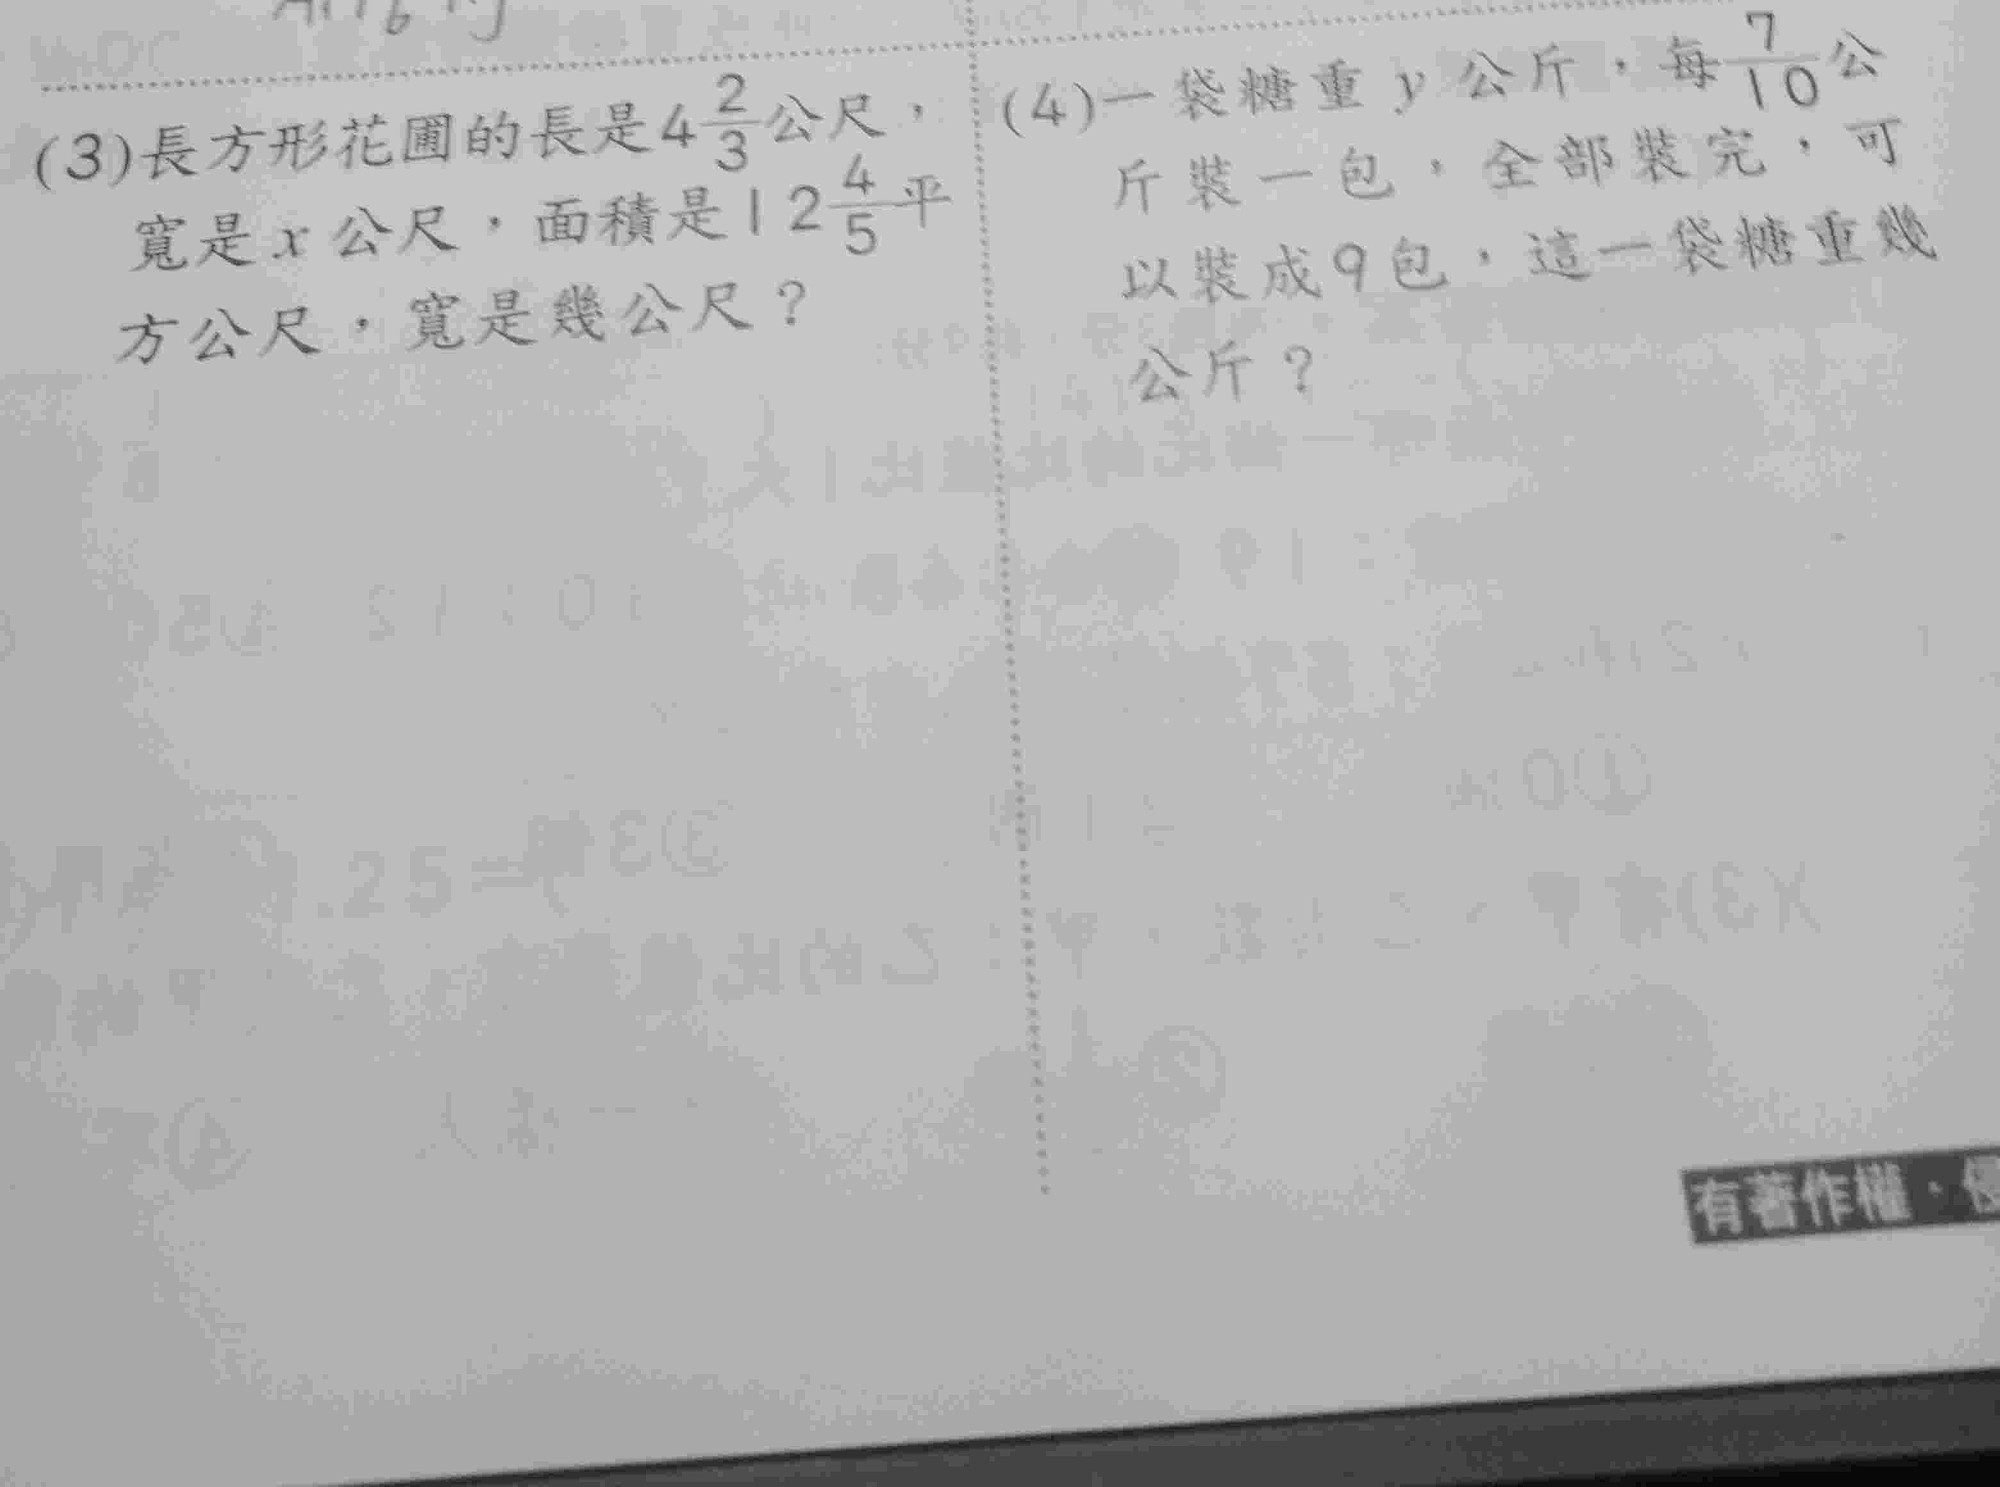 (3)長方形花圃的長是4 2/3公尺，
寬是 x 公尺，面積是12 4/5平
方公尺，寬是幾公尺？
(4)一袋糖重 y 公斤，每7/10公
斤裝一包，全部裝完，可
以裝成9包，這一袋糖重幾
公斤？
有著作權・侵